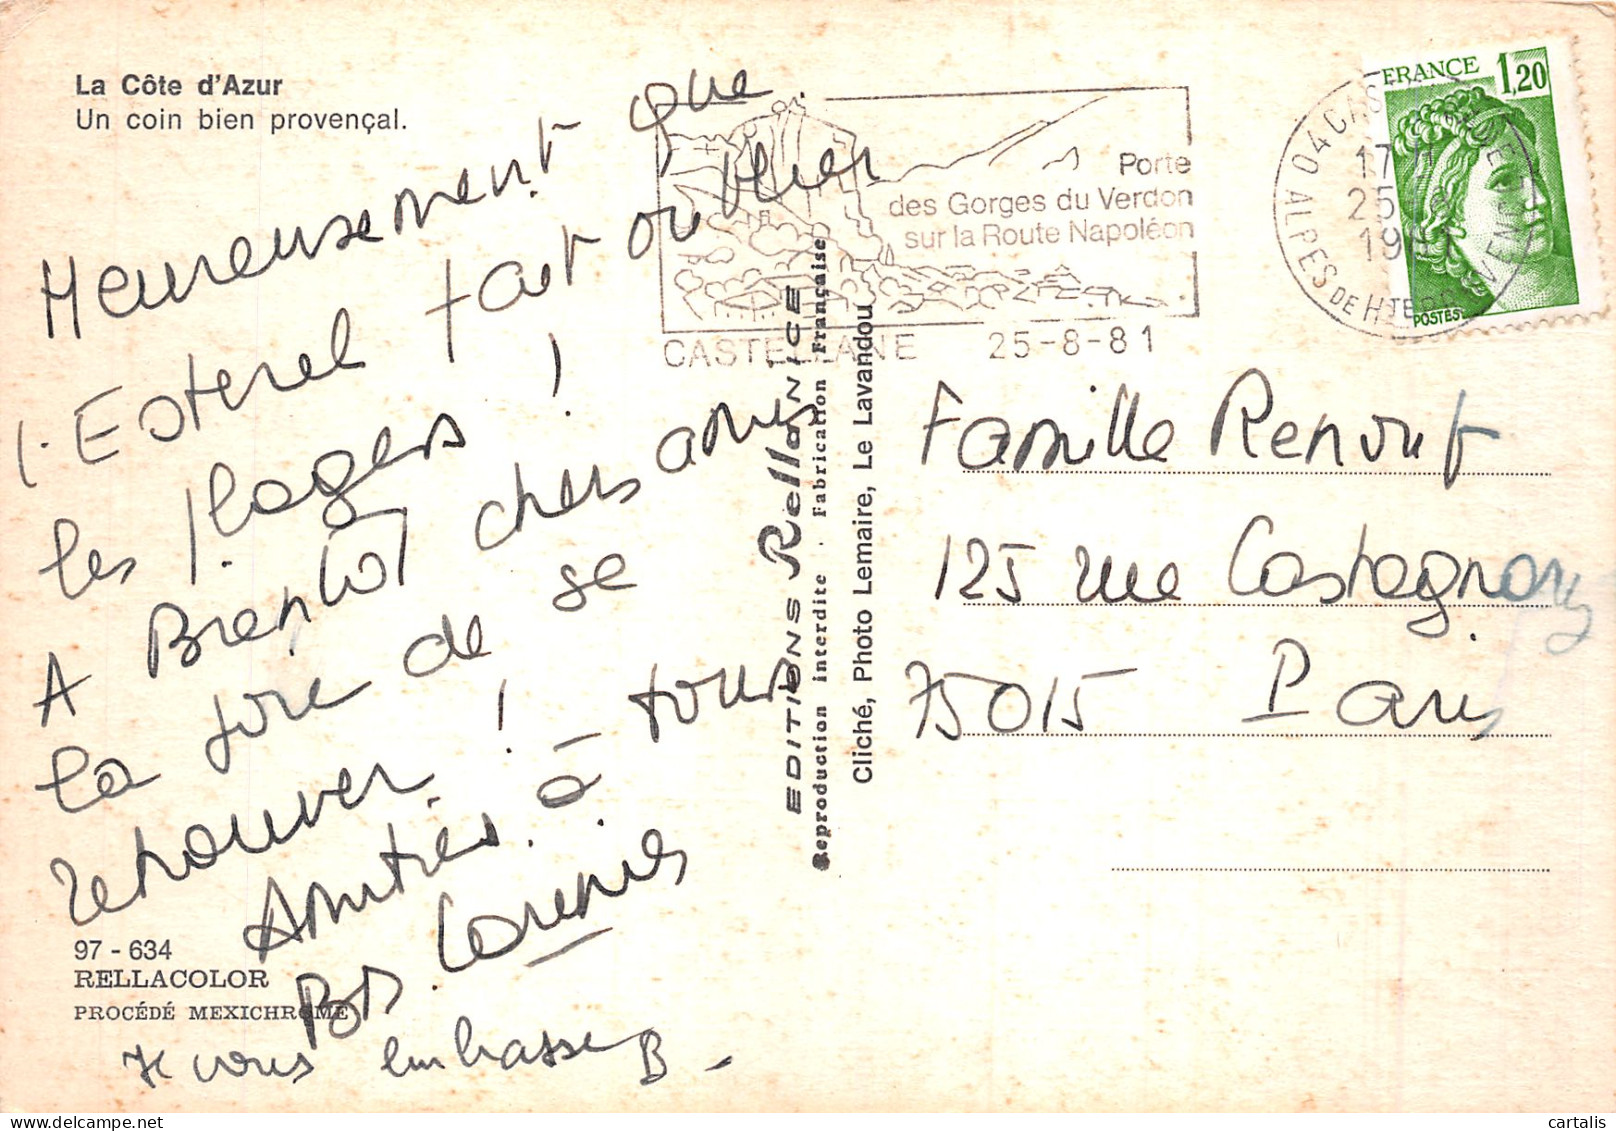 La Côte d'Azur
Un coin bien provençal.
Heureusement que
l'Esterel fait oublier
les plages !
A Bientôt chers amis
la joie de se
retrouver !
Amitiés à tous
Je vous embrasse B -
97 - 634
RELLACOLOR
PROCÉDÉ MEXICHROME
EDITIONS Rella NICE
Reproduction interdite - Fabrication Française
Cliché, Photo Lemaire, Le Lavandou
Porte
des Gorges du Verdon
sur la Route Napoléon
CASTELLANE 25-8-81
04 CASTELLANE
17 H
25 - 8
1981
ALPES DE HTE PROVENCE
FRANCE 1,20
POSTES
Famille Renouf
125 rue Castagnary
75015 Paris
cartalis